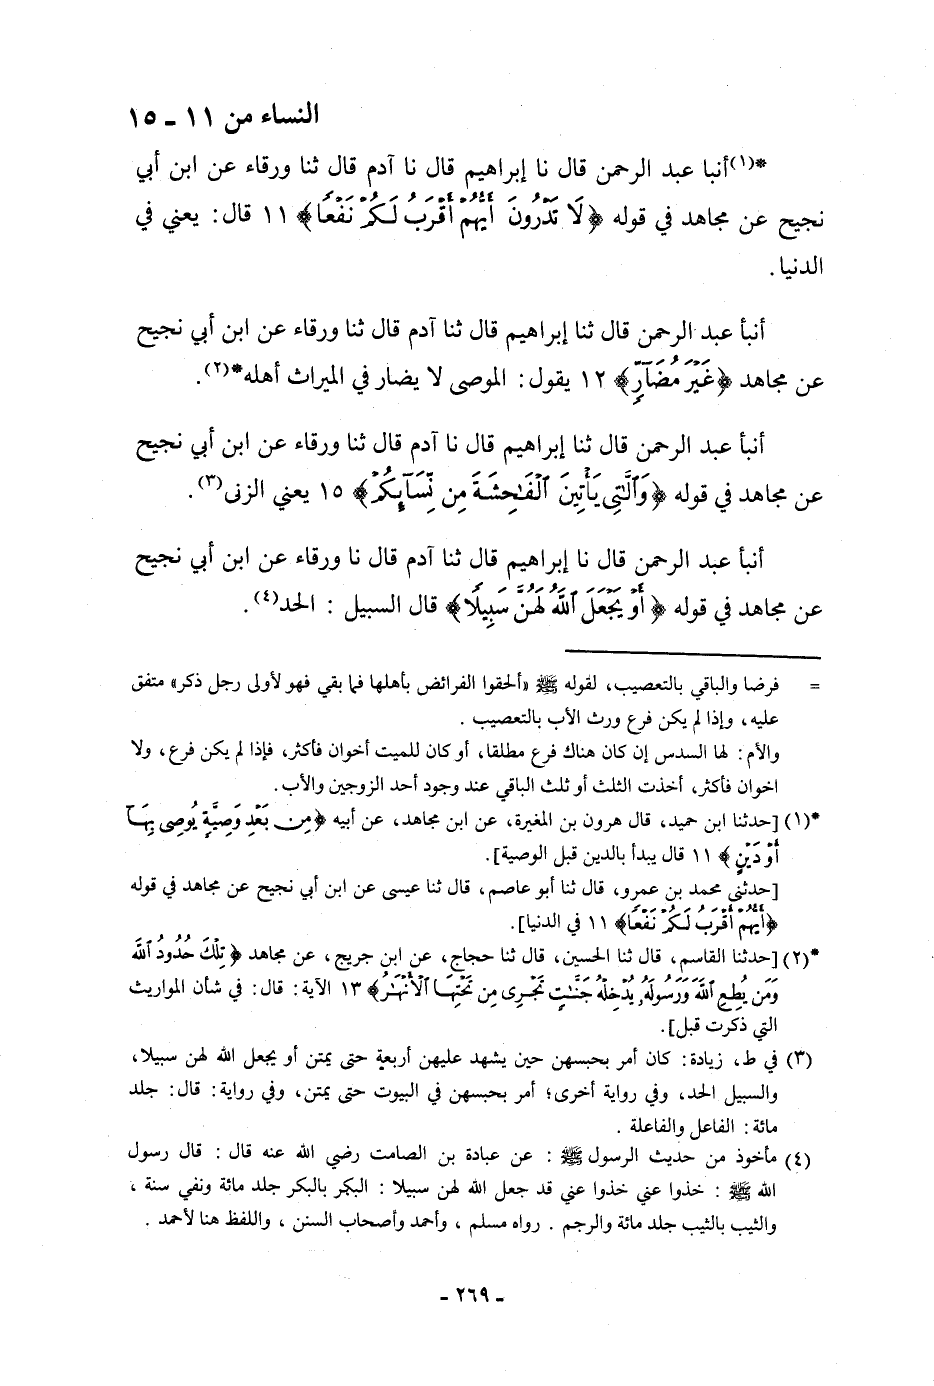 النساء من ١١ - ١٥
*(١)أنبا عبد الرحمن قال نا إبراهيم قال نا آدم قال ثنا ورقاء عن ابن أبي
نجيح عن مجاهد في قوله ﴿لَا تَدْرُونَ أَيُّهُمْ أَقْرَبُ لَكُمْ نَفْعًا﴾ ١١ قال: يعني في
الدنيا.
أنبأ عبد الرحمن قال ثنا إبراهيم قال ثنا آدم قال ثنا ورقاء عن ابن أبي نجيح
عن مجاهد ﴿غَيْرَ مُضَآرٍّ﴾ ١٢ يقول: الموصى لا يضار في الميراث أهله*(٢).
أنبأ عبد الرحمن قال ثنا إبراهيم قال نا آدم قال ثنا ورقاء عن ابن أبي نجيح
عن مجاهد في قوله ﴿وَٱلَّٰتِى يَأْتِينَ ٱلْفَٰحِشَةَ مِن نِّسَآئِكُمْ﴾ ١٥ يعني الزنى(٣).
أنبأ عبد الرحمن قال نا إبراهيم قال ثنا آدم قال نا ورقاء عن ابن أبي نجيح
عن مجاهد في قوله ﴿أَوْ يَجْعَلَ ٱللَّهُ لَهُنَّ سَبِيلًا﴾ قال السبيل : الحد(٤).
= فرضا والباقي بالتعصيب، لقوله ﷺ «ألحقوا الفرائض بأهلها فما بقي فهو لأولى رجل ذكر» متفق
عليه، وإذا لم يكن فرع ورث الأب بالتعصيب .
والأم: لها السدس إن كان هناك فرع مطلقا، أو كان للميت أخوان فأكثر، فإذا لم يكن فرع، ولا
اخوان فأكثر، أخذت الثلث أو ثلث الباقي عند وجود أحد الزوجين والأب.
*(١) [حدثنا ابن حميد، قال هرون بن المغيرة، عن ابن مجاهد، عن أبيه ﴿مِنۢ بَعْدِ وَصِيَّةٍ يُوصِى بِهَآ
أَوْ دَيْنٍ﴾ ١١ قال يبدأ بالدين قبل الوصية].
[حدثنى محمد بن عمرو، قال ثنا أبو عاصم، قال ثنا عيسى عن ابن أبي نجيح عن مجاهد في قوله
﴿أَيُّهُمْ أَقْرَبُ لَكُمْ نَفْعًا﴾ ١١ في الدنيا].
*(٢) [حدثنا القاسم، قال ثنا الحسين، قال ثنا حجاج، عن ابن جريج، عن مجاهد ﴿تِلْكَ حُدُودُ ٱللَّهِ
وَمَن يُطِعِ ٱللَّهَ وَرَسُولَهُۥ يُدْخِلْهُ جَنَّٰتٍ تَجْرِى مِن تَحْتِهَا ٱلْأَنْهَٰرُ﴾ ١٣ الآية: قال: في شأن المواريث
التي ذكرت قبل].
(٣) في ط، زيادة: كان أمر بحبسهن حين يشهد عليهن أربعة حتى يمتن أو يجعل الله لهن سبيلا،
والسبيل الحد، وفي رواية أخرى؛ أمر بحبسهن في البيوت حتى يمتن، وفي رواية: قال: جلد
مائة: الفاعل والفاعلة .
(٤) مأخوذ من حديث الرسول ﷺ : عن عبادة بن الصامت رضي الله عنه قال : قال رسول
الله ﷺ : خذوا عني خذوا عني قد جعل الله لهن سبيلا : البكر بالبكر جلد مائة ونفي سنة ،
والثيب بالثيب جلد مائة والرجم . رواه مسلم ، وأحمد وأصحاب السنن ، واللفظ هنا لأحمد .
- ٢٦٩ -